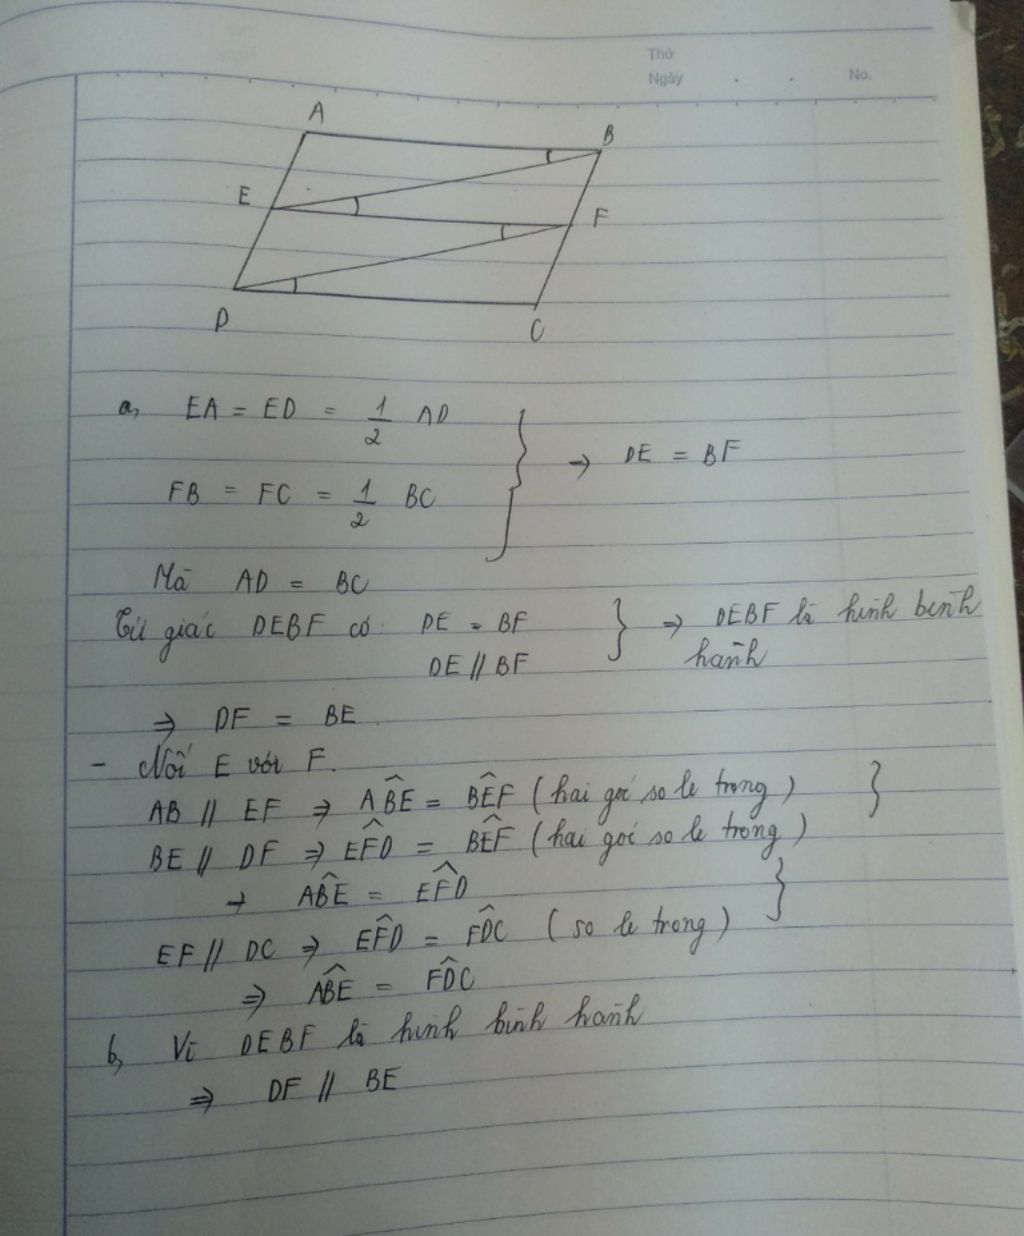 Thứ
Ngày . . No.
A
B
E
F
D
C
a, EA = ED = 1/2 AD
⇒ DE = BF
FB = FC = 1/2 BC
Mà AD = BC
Tứ giác DEBF có: DE = BF ⇒ DEBF là hình bình
DE // BF hành
⇒ DF = BE.
- Nối E với F.
AB // EF ⇒ ABE = BEF (hai góc so le trong)
BE // DF ⇒ EFD = BEF (hai góc so le trong)
→ ABE = EFD
EF // DC ⇒ EFD = FDC (so le trong)
⇒ ABE = FDC
b, Vì DEBF là hình bình hành
⇒ DF // BE